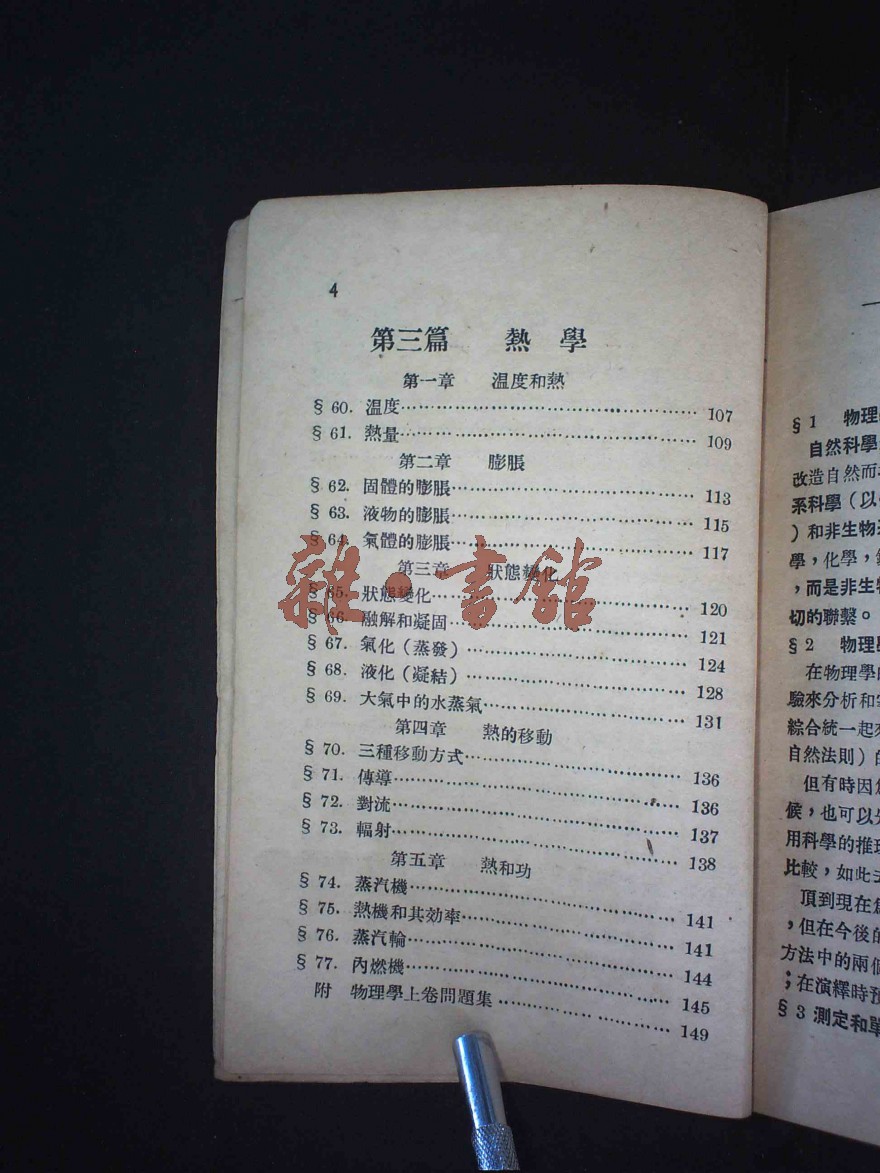 4
第三篇 熱學
第一章 温度和熱
§ 60. 温度 107
§ 61. 熱量 109
第二章 膨脹
§ 62. 固體的膨脹 113
§ 63. 液物的膨脹 115
§ 64. 氣體的膨脹 117
第三章 狀態變化
§ 65. 狀態變化 120
§ 66. 融解和凝固 121
§ 67. 氣化(蒸發) 124
§ 68. 液化(凝結) 128
§ 69. 大氣中的水蒸氣 131
第四章 熱的移動
§ 70. 三種移動方式 136
§ 71. 傳導 136
§ 72. 對流 137
§ 73. 輻射 138
第五章 熱和功
§ 74. 蒸汽機 141
§ 75. 熱機和其效率 141
§ 76. 蒸汽輪 144
§ 77. 內燃機 145
附 物理學上卷問題集 149
雜·書館
§ 1 物理
自然科學
改造自然而
系科學(以
)和非生物
學,化學,
,而是非生
切的聯繫。
§ 2 物理
在物理學
驗來分析和
綜合統一起
自然法則)
但有時因
候,也可以
用科學的推
比較,如此
頂到現在
,但在今後的
方法中的兩個
;在演繹時預
§ 3 測定和單